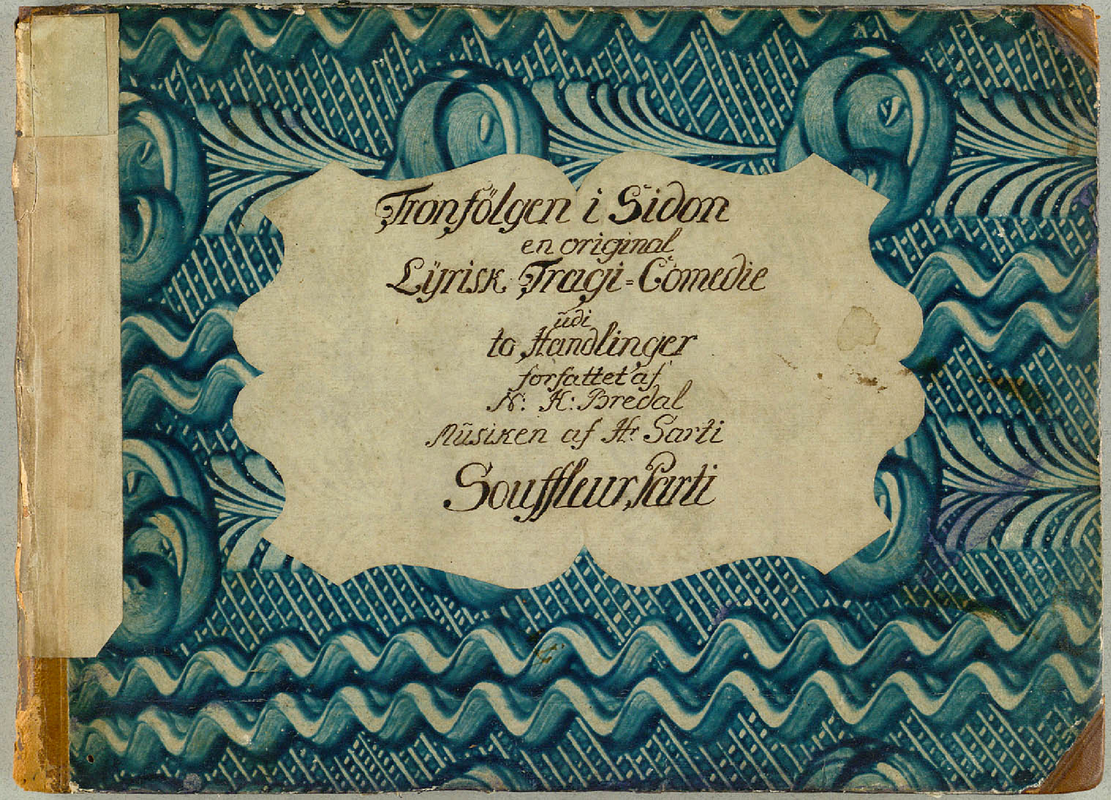 Tronfölgen i Sidon
en original
Lÿrisk Tragi=Comedie
ūdi
to Handlinger
forfattet af
N: K: Bredal
Mūsiken af Hr Sarti
Souffleur, Parti